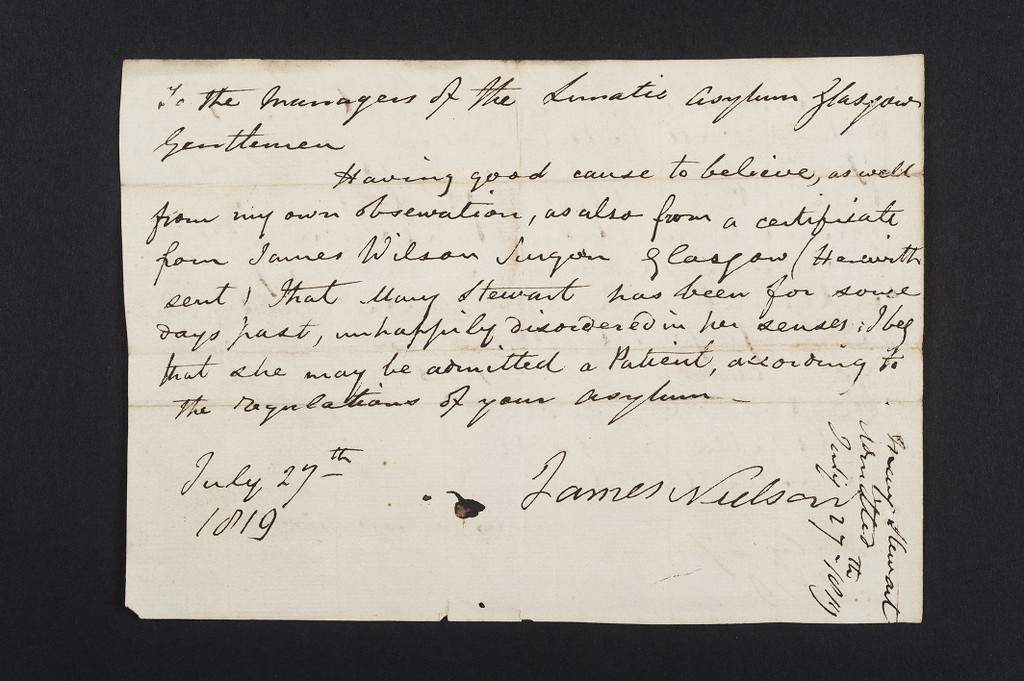 To the Managers of the Lunatic Asylum Glasgow
Gentlemen
Having good cause to believe, as well
from my own observation, as also from a certificate
from James Wilson Surgeon Glasgow (Herewith
sent) That Mary Stewart has been for some
days past, unhappily disordered in her senses; I beg
that she may be admitted a Patient, according to
the regulations of your Asylum –
July 27th
1819
James Neilson
Mary Stewart
Admitted
July 27th 1819